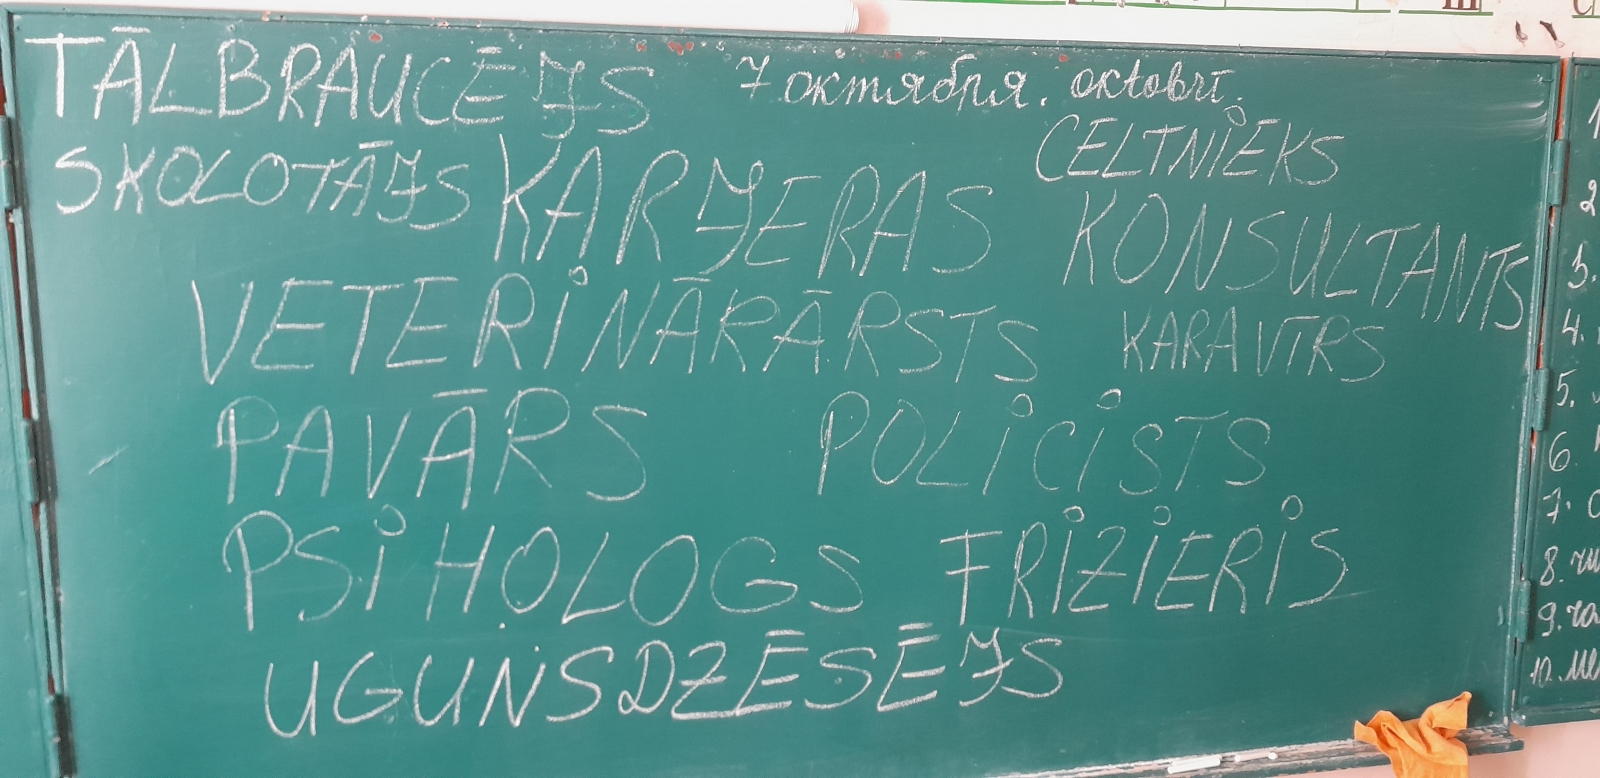 TĀLBRAUCĒJS 7 октября. oktobrī.
CELTNIEKS
SKOLOTĀJS KARJERAS KONSULTANTS
VETERINĀRĀRSTS KARAVĪRS
PAVĀRS POLICISTS
PSIHOLOGS FRIZIERIS
UGUNSDZĒSĒJS
2
3.
4.
5.
6
7.
8.
9.
10.